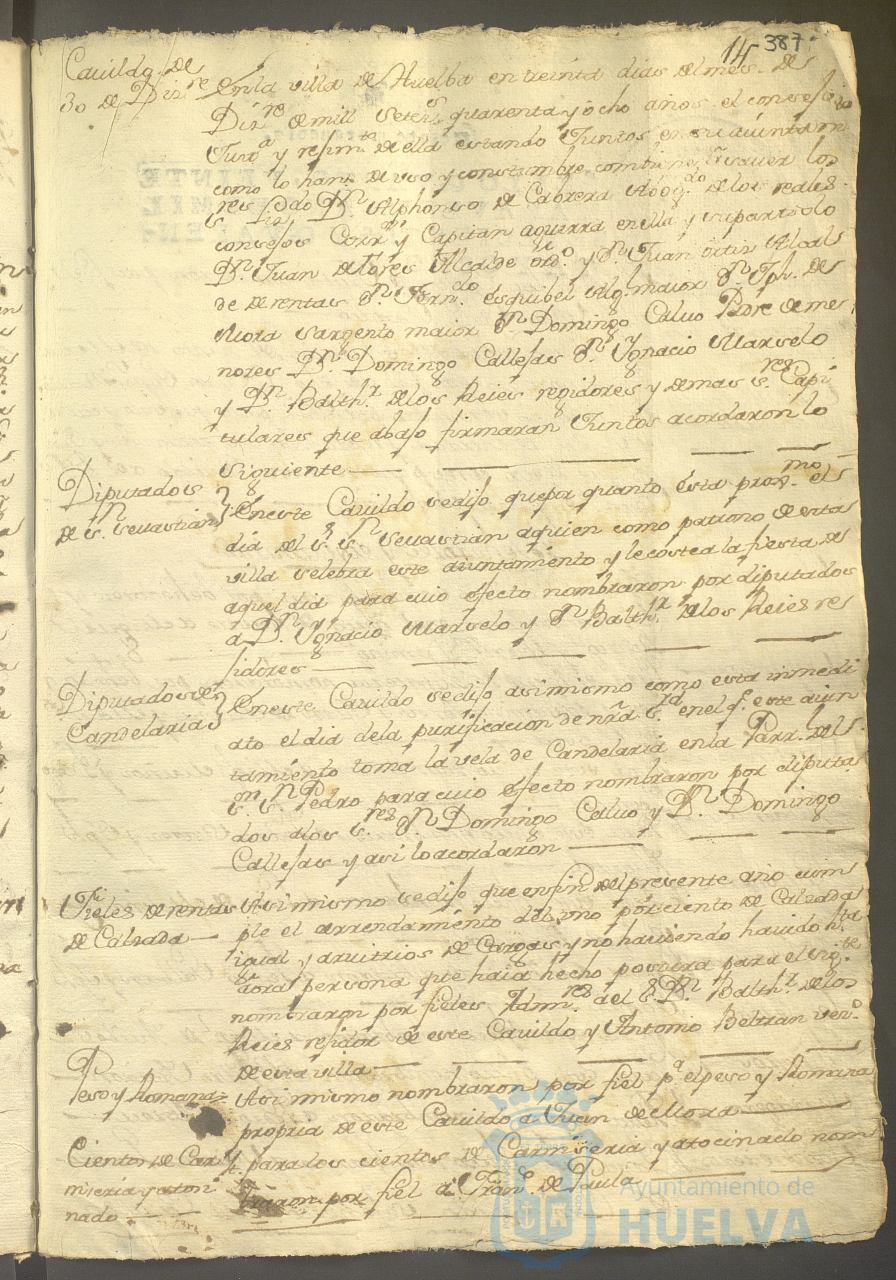 14 387
Cauildo de
30 de Dizre
En la villa de Huelba en treinta dias del mes de
Dizre de mill setezs quarenta y ocho años el consejo
Justa y rejimto de ella estando Juntos en su aiuntam
como lo han de uso y costumbre combiene a sauer los
sres Lizdo Dn Alphonso de Cabrera Abogdo de los reales
consejos Corror y Capitan a guerra en ella y su partido
Dn Juan de flores Alcalde ordo y Dn Juan ortis Alcal
de de rentas Dn Ferndo esquibel Algl maior Dn Jph de
Mora Sargento maior Dn Domingo Caluo Pdre de me
nores Dn Domingo Callejas Dn Ygnacio Marselo
y Dn Balthr de los Reies regidores y demas sres Capi
tulares que abajo firmaran Juntos acordaron lo
siguiente
Diputados
de Sn Seuastian
En este Cauildo se dijo que por quanto esta proxmo el
dia del Sr Sn Seuastian a quien como patrono de esta
villa selebra este aiuntamiento y le costea la fiesta de
aquel dia para cuio efecto nombraron por diputados
a Dn Ygnacio Marselo y Dn Balthr de los Reies re
jidores
Diputados de
Candelaria
En este Cauildo se dijo asi mismo como esta inmedi
ato el dia de la purificacion de nra Sra en el q este aiun
tamiento toma la vela de Candelaria en la Parrl del
Sor Sn Pedro para cuio efecto nombraron por diputa
dos a los sres Dn Domingo Caluo y Dn Domingo
Callejas y asi lo acordaron
Fieles de rentas
de Calzada
Asi mismo se dijo que en fin del presente año cum
ple el arrendamiento del uno por ciento de Calzada
igual y aruitrios de Cargas y no hauiendo hauido hta
aora persona que haia hecho postura para el sigte
nombraron por fieles Admres a el Sr Dn Balthr de los
Reies rejidor de este Cauildo y Antonio Beltran veno
de esta villa
Peso y Romana
Asi mismo nombraron por fiel pa el peso y Romana
propria de este Cauildo a Juan de Mora
Cientos de Car
niseria y atosi
nado
Y para los cientos de Carniseria y atocinado nom
braron por fiel a Frano de Paula
Ayuntamiento de
HUELVA